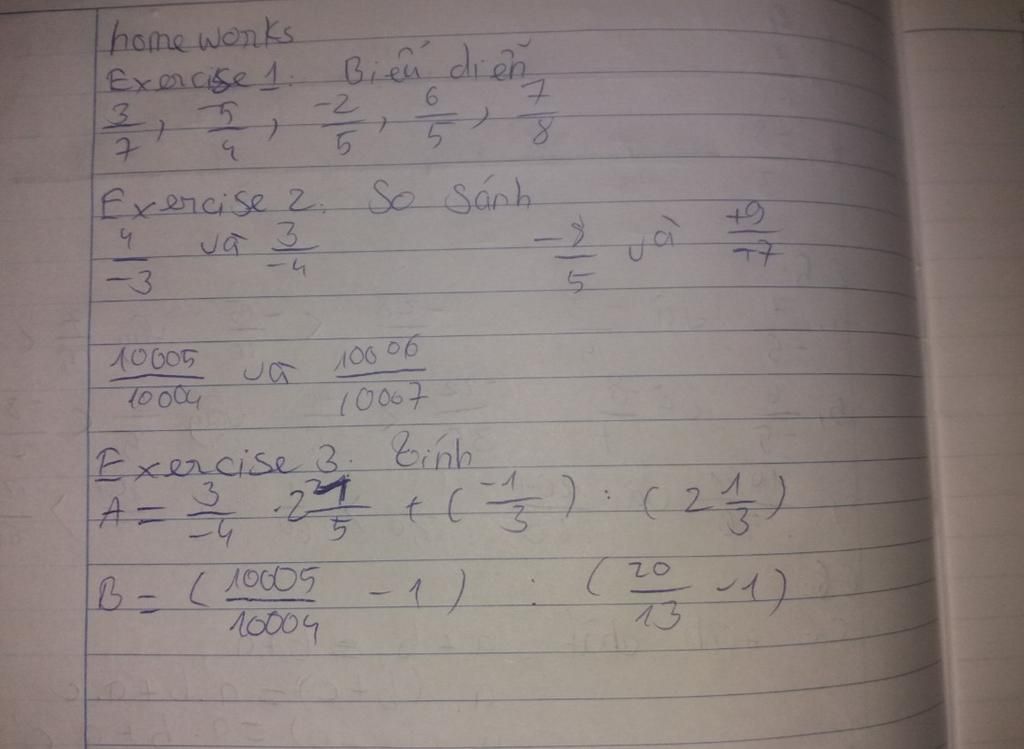 homeworks
Exercise 1. Biểu diễn
3/7, 5/4, -2/5, 6/5, 7/8
Exercise 2. So sánh
4/-3 và 3/-4 -8/5 và +9/-7
10005/10004 và 10006/10007
Exercise 3. Tính
A = 3/-4 . 2 1/5 + (-1/3) : (2 1/3)
B = (10005/10004 - 1) : (20/13 - 1)